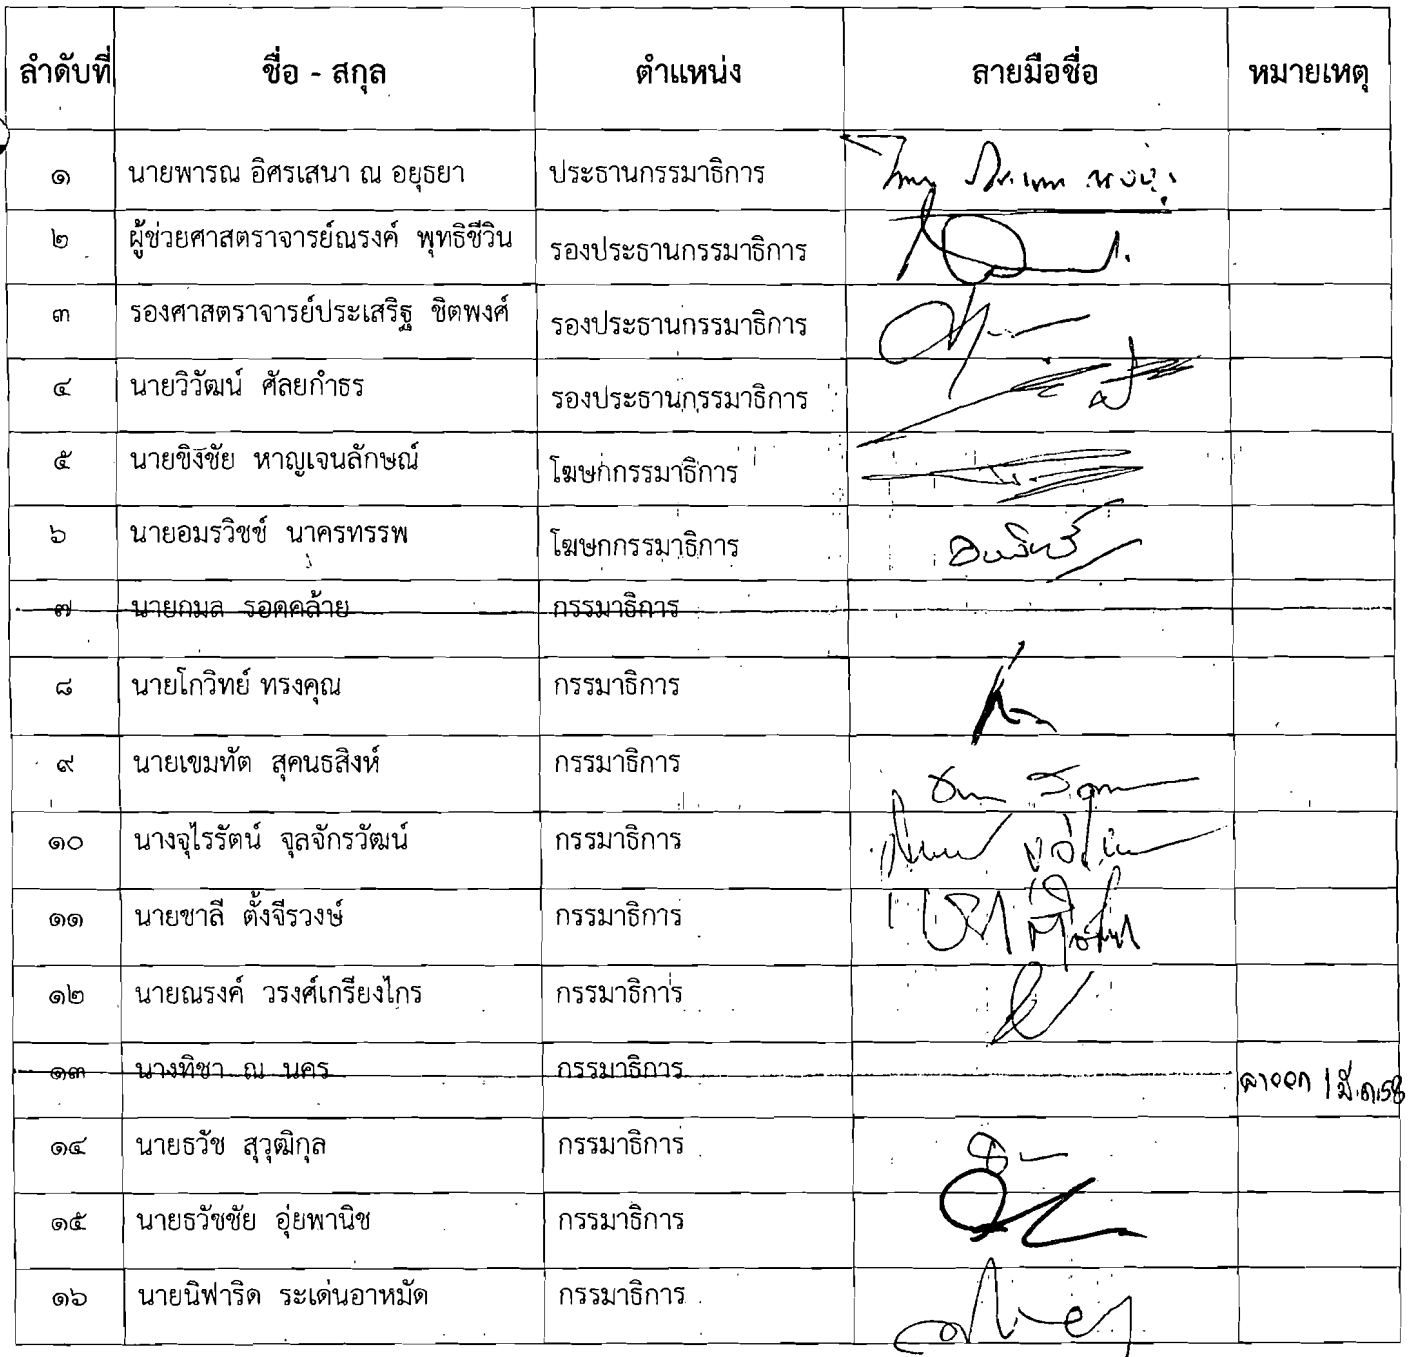 ลำดับที่ ชื่อ - สกุล ตำแหน่ง ลายมือชื่อ หมายเหตุ
๑ นายพารณ อิศรเสนา ณ อยุธยา ประธานกรรมาธิการ
๒ ผู้ช่วยศาสตราจารย์ณรงค์ พุทธิชีวิน รองประธานกรรมาธิการ
๓ รองศาสตราจารย์ประเสริฐ ชิตพงศ์ รองประธานกรรมาธิการ
๔ นายวิวัฒน์ ศัลยกำธร รองประธานกรรมาธิการ
๕ นายขิงชัย หาญเจนลักษณ์ โฆษกกรรมาธิการ
๖ นายอมรวิชช์ นาครทรรพ โฆษกกรรมาธิการ
๗ นายกมล รอดคล้าย กรรมาธิการ
๘ นายโกวิทย์ ทรงคุณ กรรมาธิการ
๙ นายเขมทัต สุคนธสิงห์ กรรมาธิการ
๑๐ นางจุไรรัตน์ จุลจักรวัฒน์ กรรมาธิการ
๑๑ นายชาลี ตั้งจีรวงษ์ กรรมาธิการ
๑๒ นายณรงค์ วรงศ์เกรียงไกร กรรมาธิการ
๑๓ นางทิชา ณ นคร กรรมาธิการ ลาออก 1 มี.ค.58
๑๔ นายธวัช สุวุฒิกุล กรรมาธิการ
๑๕ นายธวัชชัย อุ่ยพานิช กรรมาธิการ
๑๖ นายนิฟาริด ระเด่นอาหมัด กรรมาธิการ